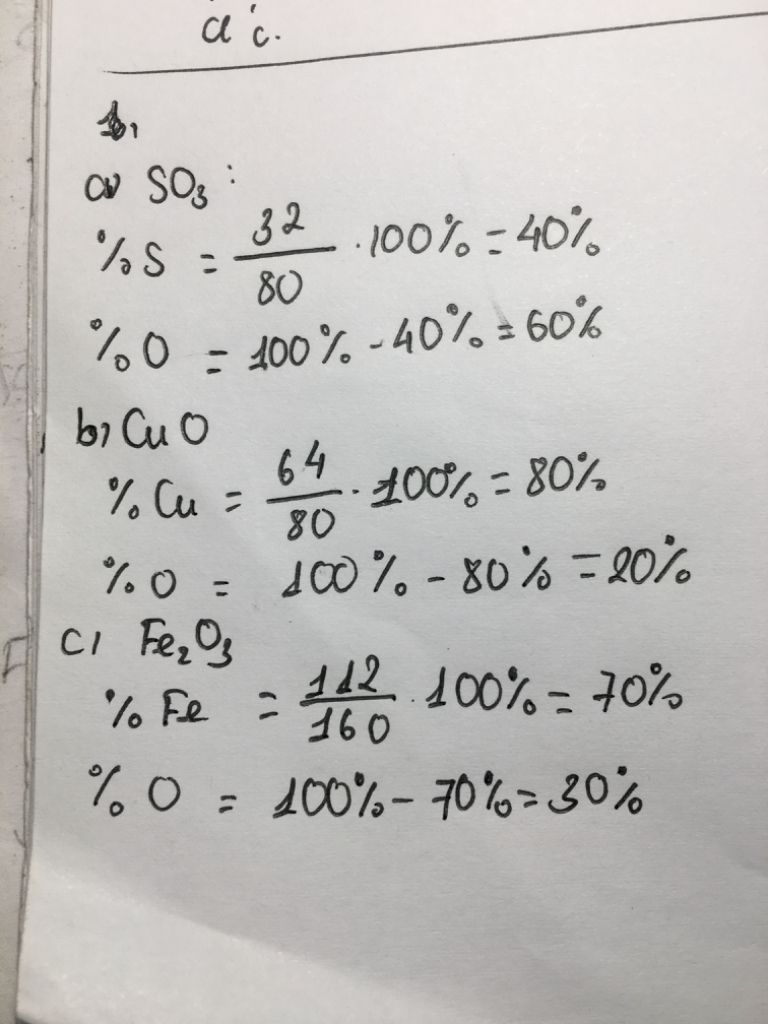 a) SO₃ :
%S = 32/80 . 100% = 40%
%O = 100% - 40% = 60%
b) CuO
% Cu = 64/80 . 100% = 80%
% O = 100% - 80% = 20%
c) Fe₂O₃
% Fe = 112/160 . 100% = 70%
% O = 100% - 70% = 30%